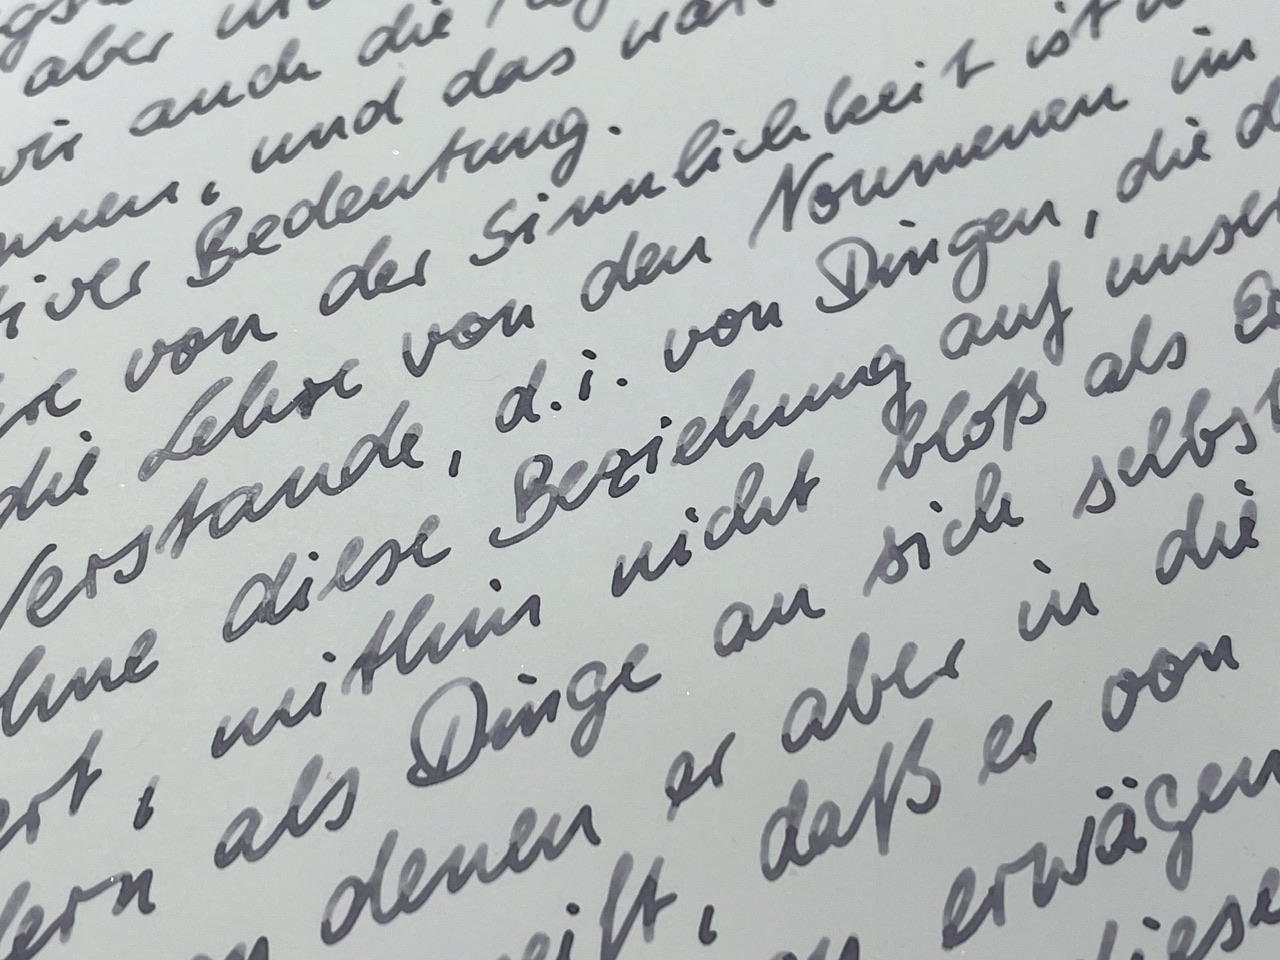 aber
wir auch die
, und das war
tiver Bedeutung.
von der Sinnlichkeit ist
die Lehre von den Noumenen im
Verstande, d.i. von Dingen, die d
ohne diese Beziehung auf unser
ert, mithin nicht bloß als E
dern als Dinge an sich selbst
denen er aber in die
eift, daß er von
erwägen
diese